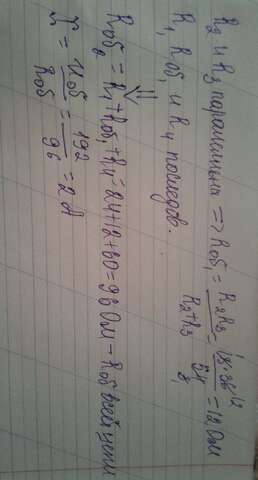 R2 и R3 параллельны => Rоб1 = R2R3/R2+R3 = 18·36/54 = 12 Ом
R1, Rоб1 и R4 послед.
Rоб2 = R1+Rоб1+R4 = 24+12+60=96 Ом – Rоб всей цепи
I = Uоб/Rоб = 192/96 = 2 А